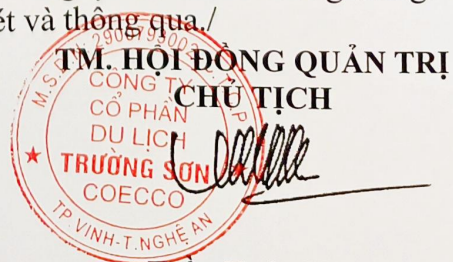 ét và thông qua./
TM. HỘI ĐỒNG QUẢN TRỊ
CHỦ TỊCH
CÔNG TY
CỔ PHẦN
DU LỊCH
TRƯỜNG SƠN
COECCO
TP.VINH-T.NGHỆ AN